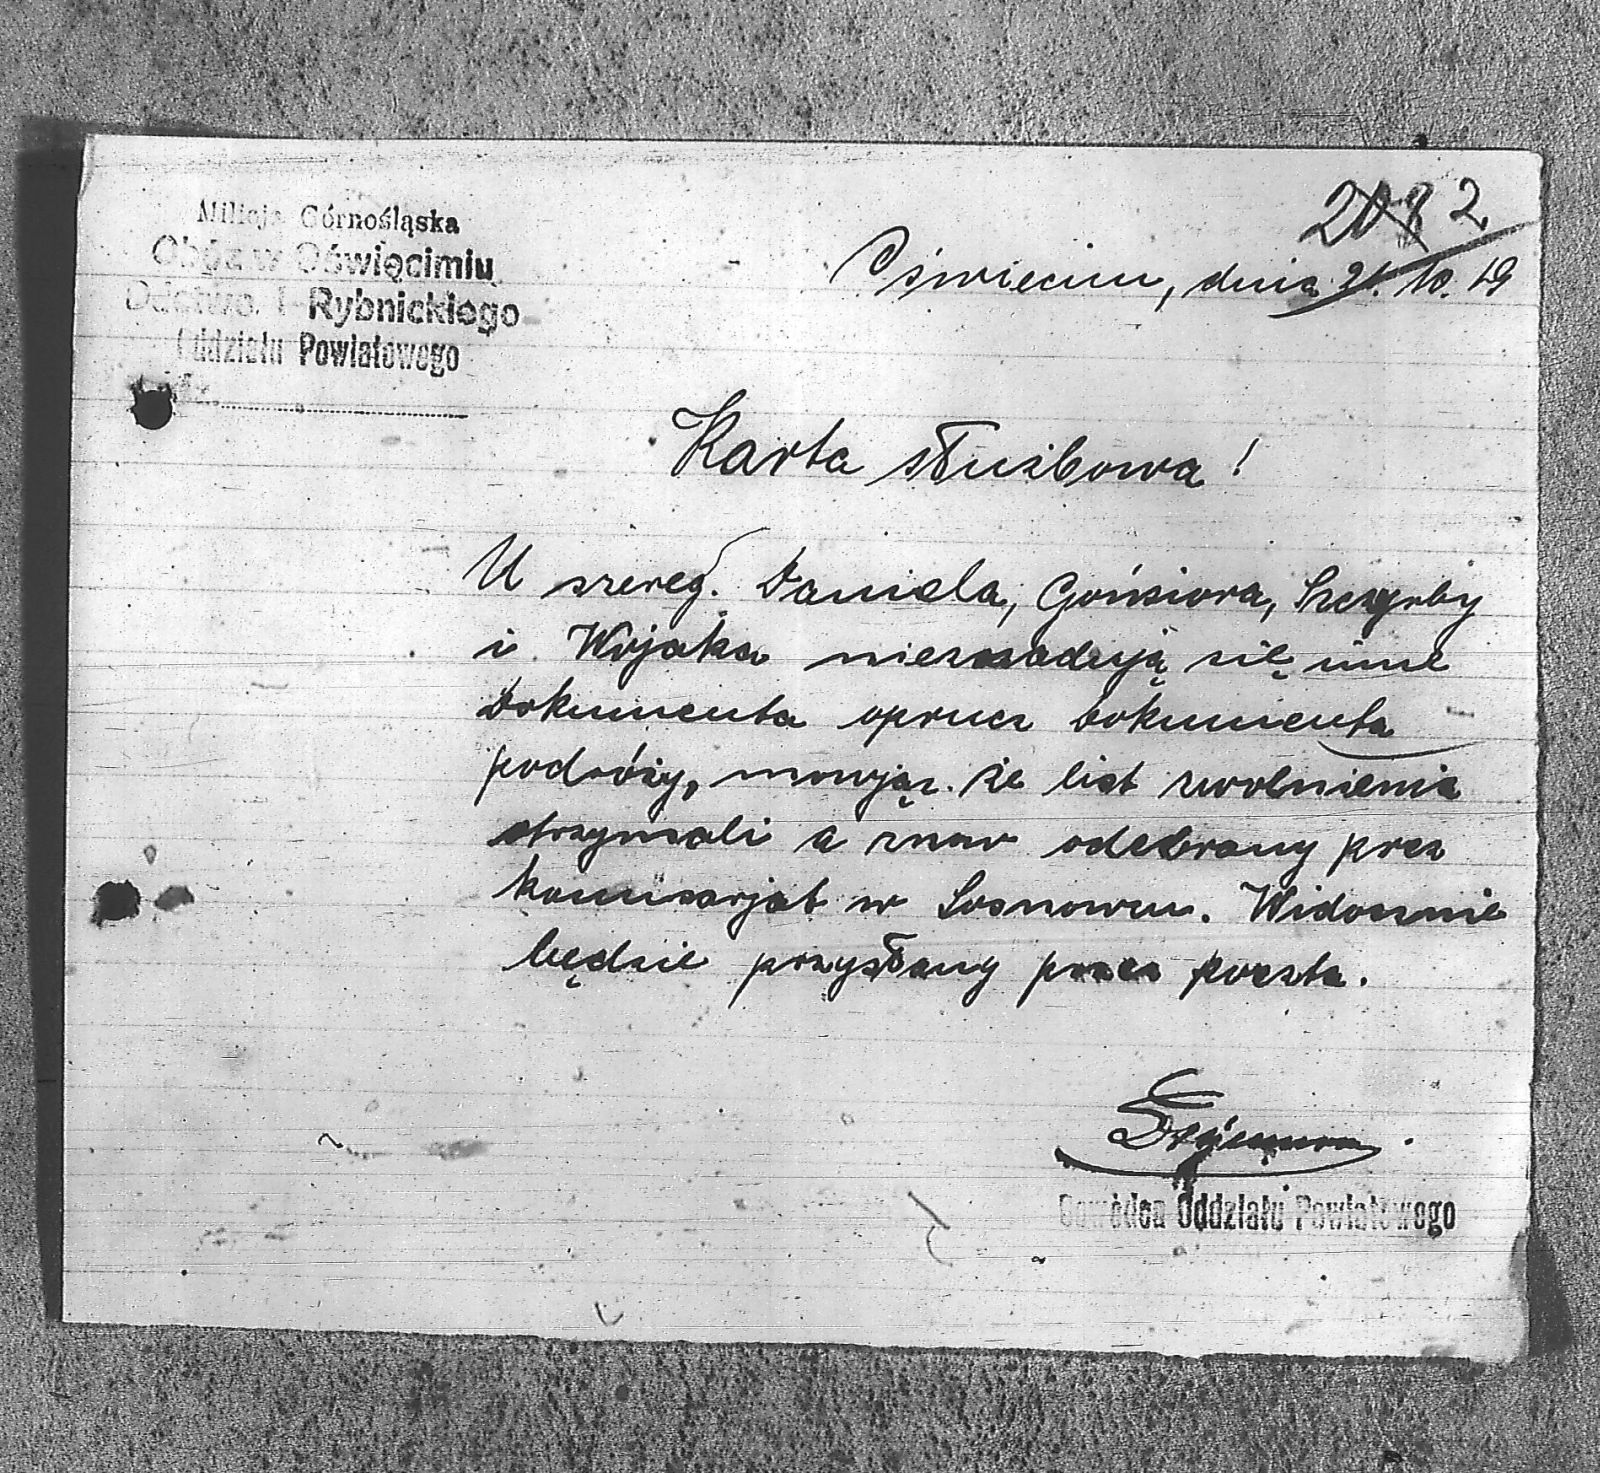 Milicja Górnośląska
Obóz w Oświęcimiu
Dóctwo. I Rybnickiego
Oddziału Powiatowego
2082
Oświecim, dnia 21. 10. 19
Karta służbowa!
U szereg. Daniela, Gońsiora, Szczyrby
i Wojaka nieznadują się inne
Dokumenta oprucz dokumenta
podróży, mowjąc że list zwolnienia
otrzymali a znow odebrany przez
komisarjat w Sosnowcu. Widocznie
będzie przysłany przez poczta.
Dowódca Oddziału Powiatowego